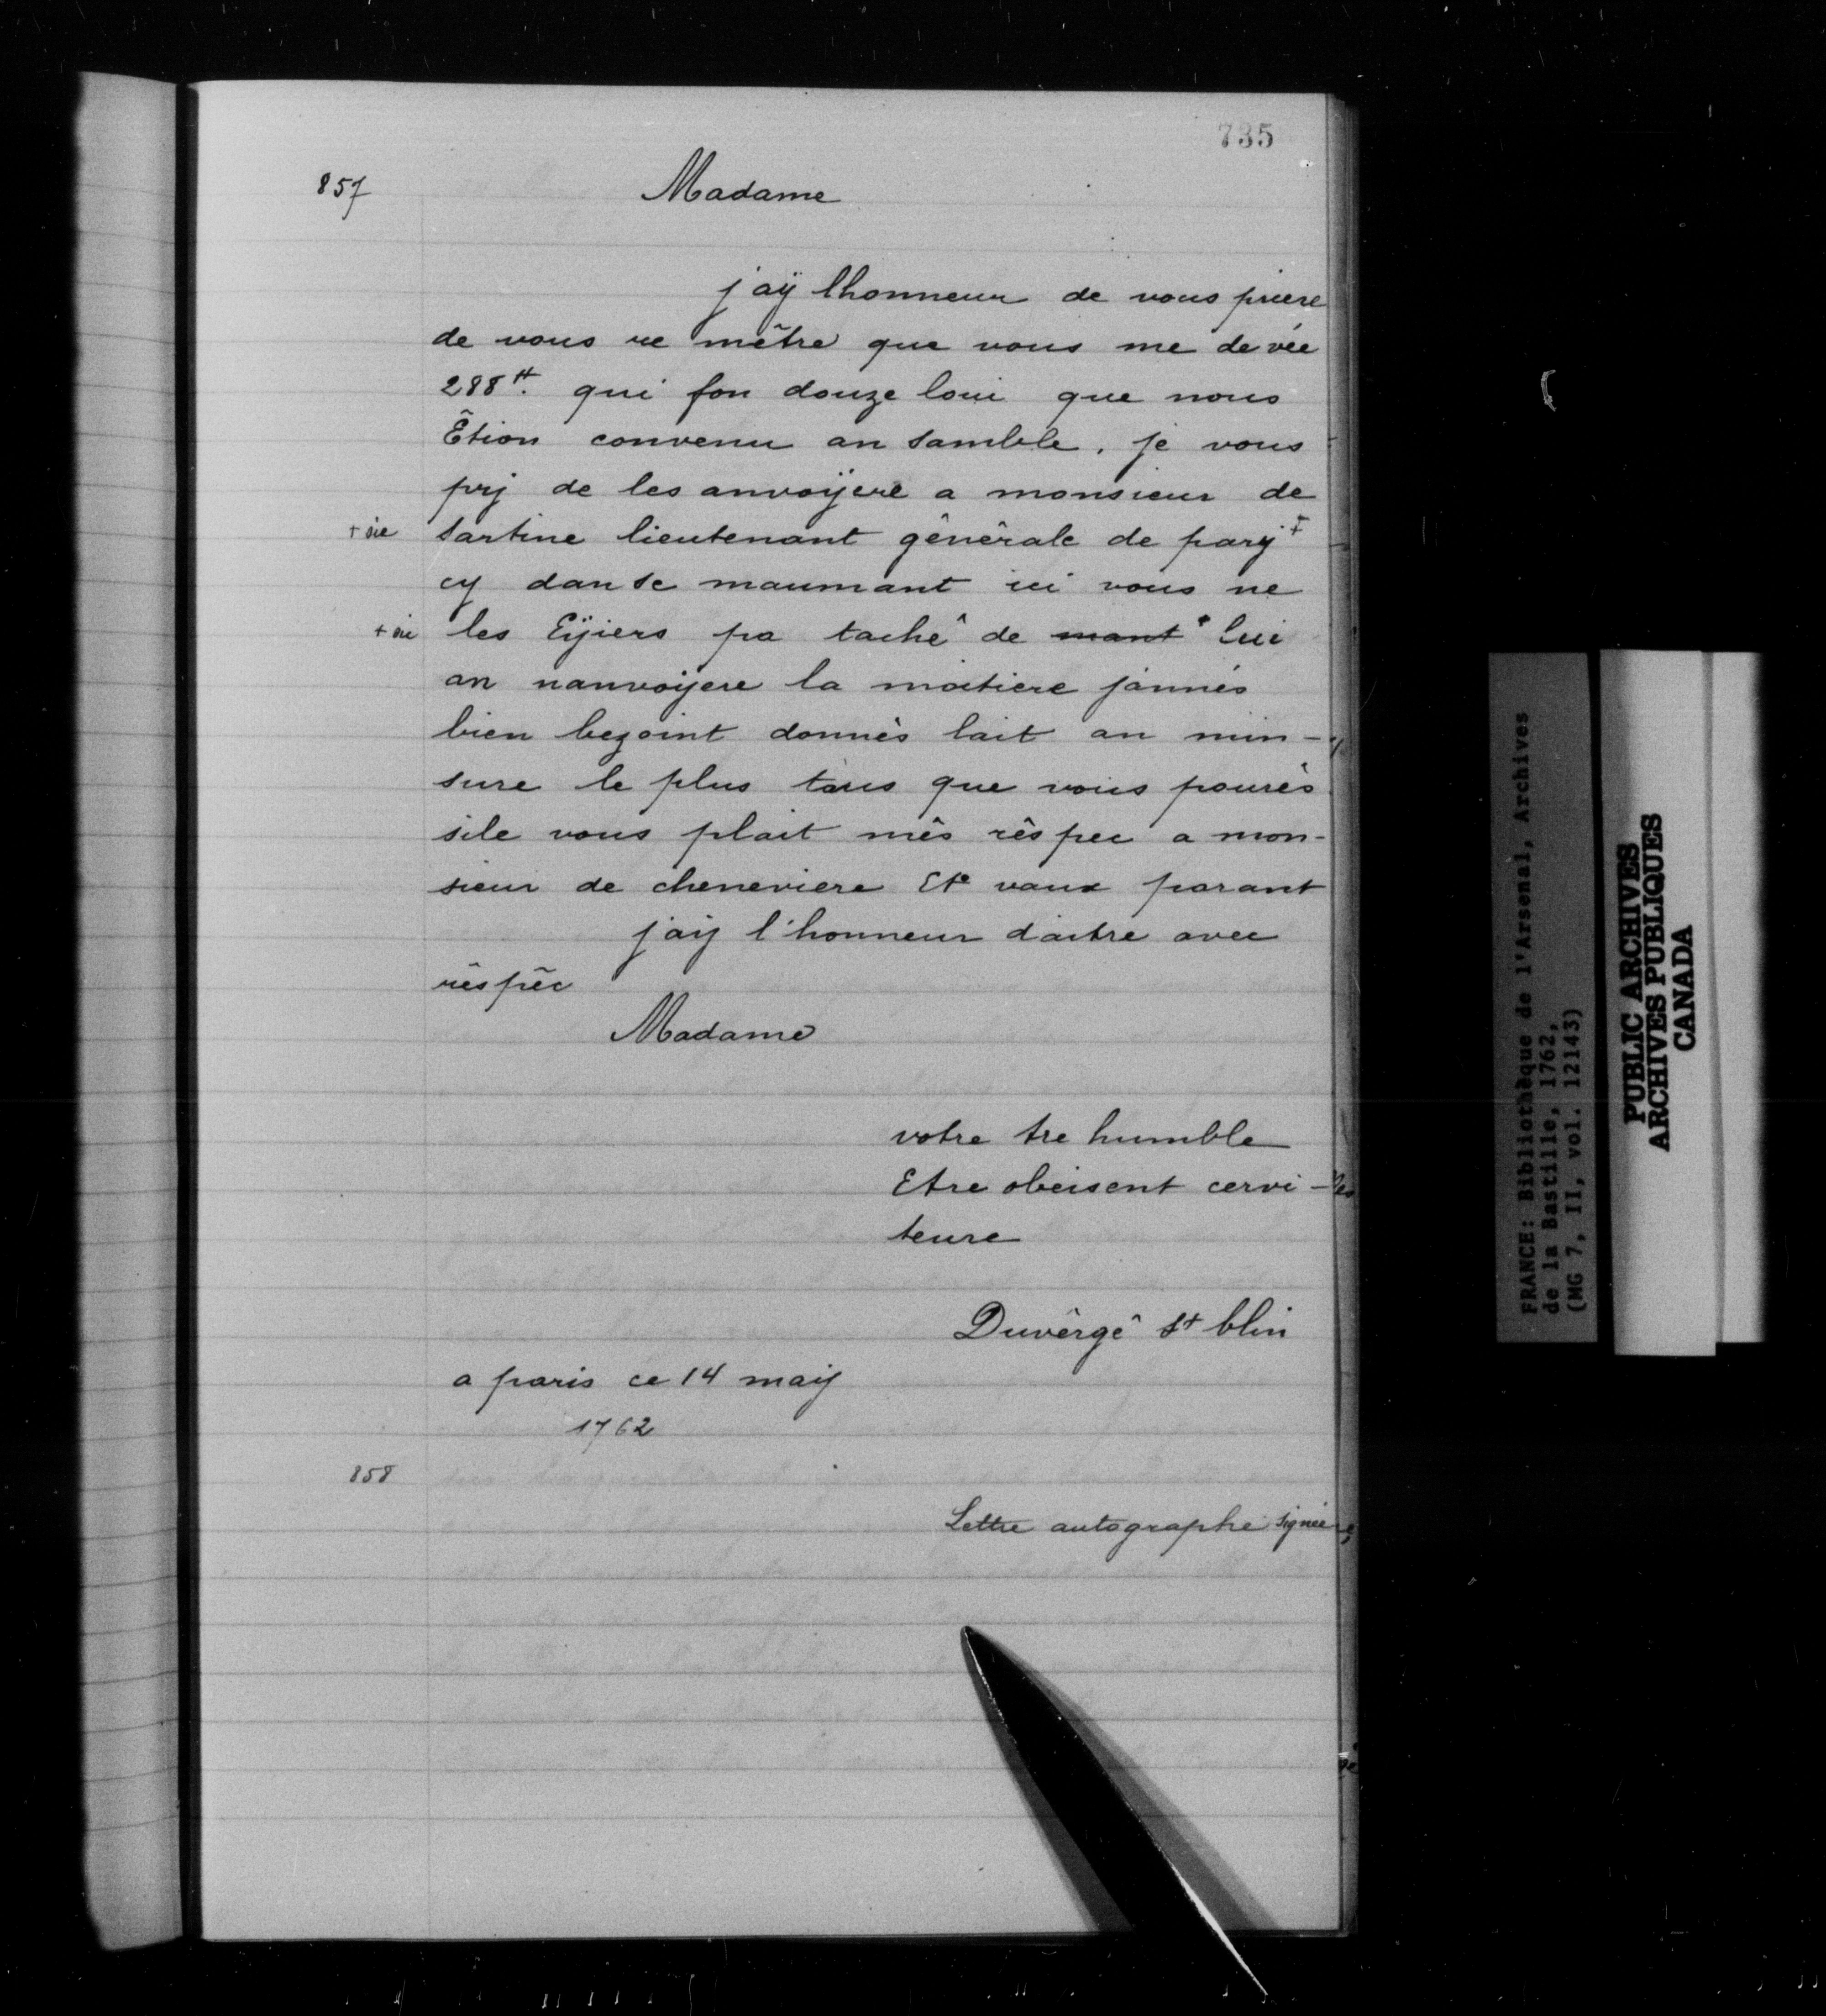 735
857
Madame
j'aÿ lhonneur de vous priere
de vous re mêtre que vous me de vée
288tt. qui fon douze loui que nous
Êtion convenu an samble. je vous
prij de les anvoÿere a monsieur de
+ sic sartine lieutenant gênêrale de parij +
cy dan se maumant ici vous ne
+ sic les Eÿiers pa tachê de mant + lui
an nanvoÿere la moitiere jánnés
bien bezoint donnés lait an min-
sure le plus taus que vous pourés
sile vous plait mês rêspec a mon-
sieur de cheneviere Ete vaux parant
j'aij l'honneur daitre avec
rêspêc
Madame
votre tre humble
Etre obeisent cervi-
teure
Duvêrgê st blin
a paris ce 14 maij
1762
858
Lettre autographe signée
FRANCE: Bibliothèque de l'Arsenal, Archives
de la Bastille, 1762,
(MG 7, II, vol. 12143)
PUBLIC ARCHIVES
ARCHIVES PUBLIQUES
CANADA